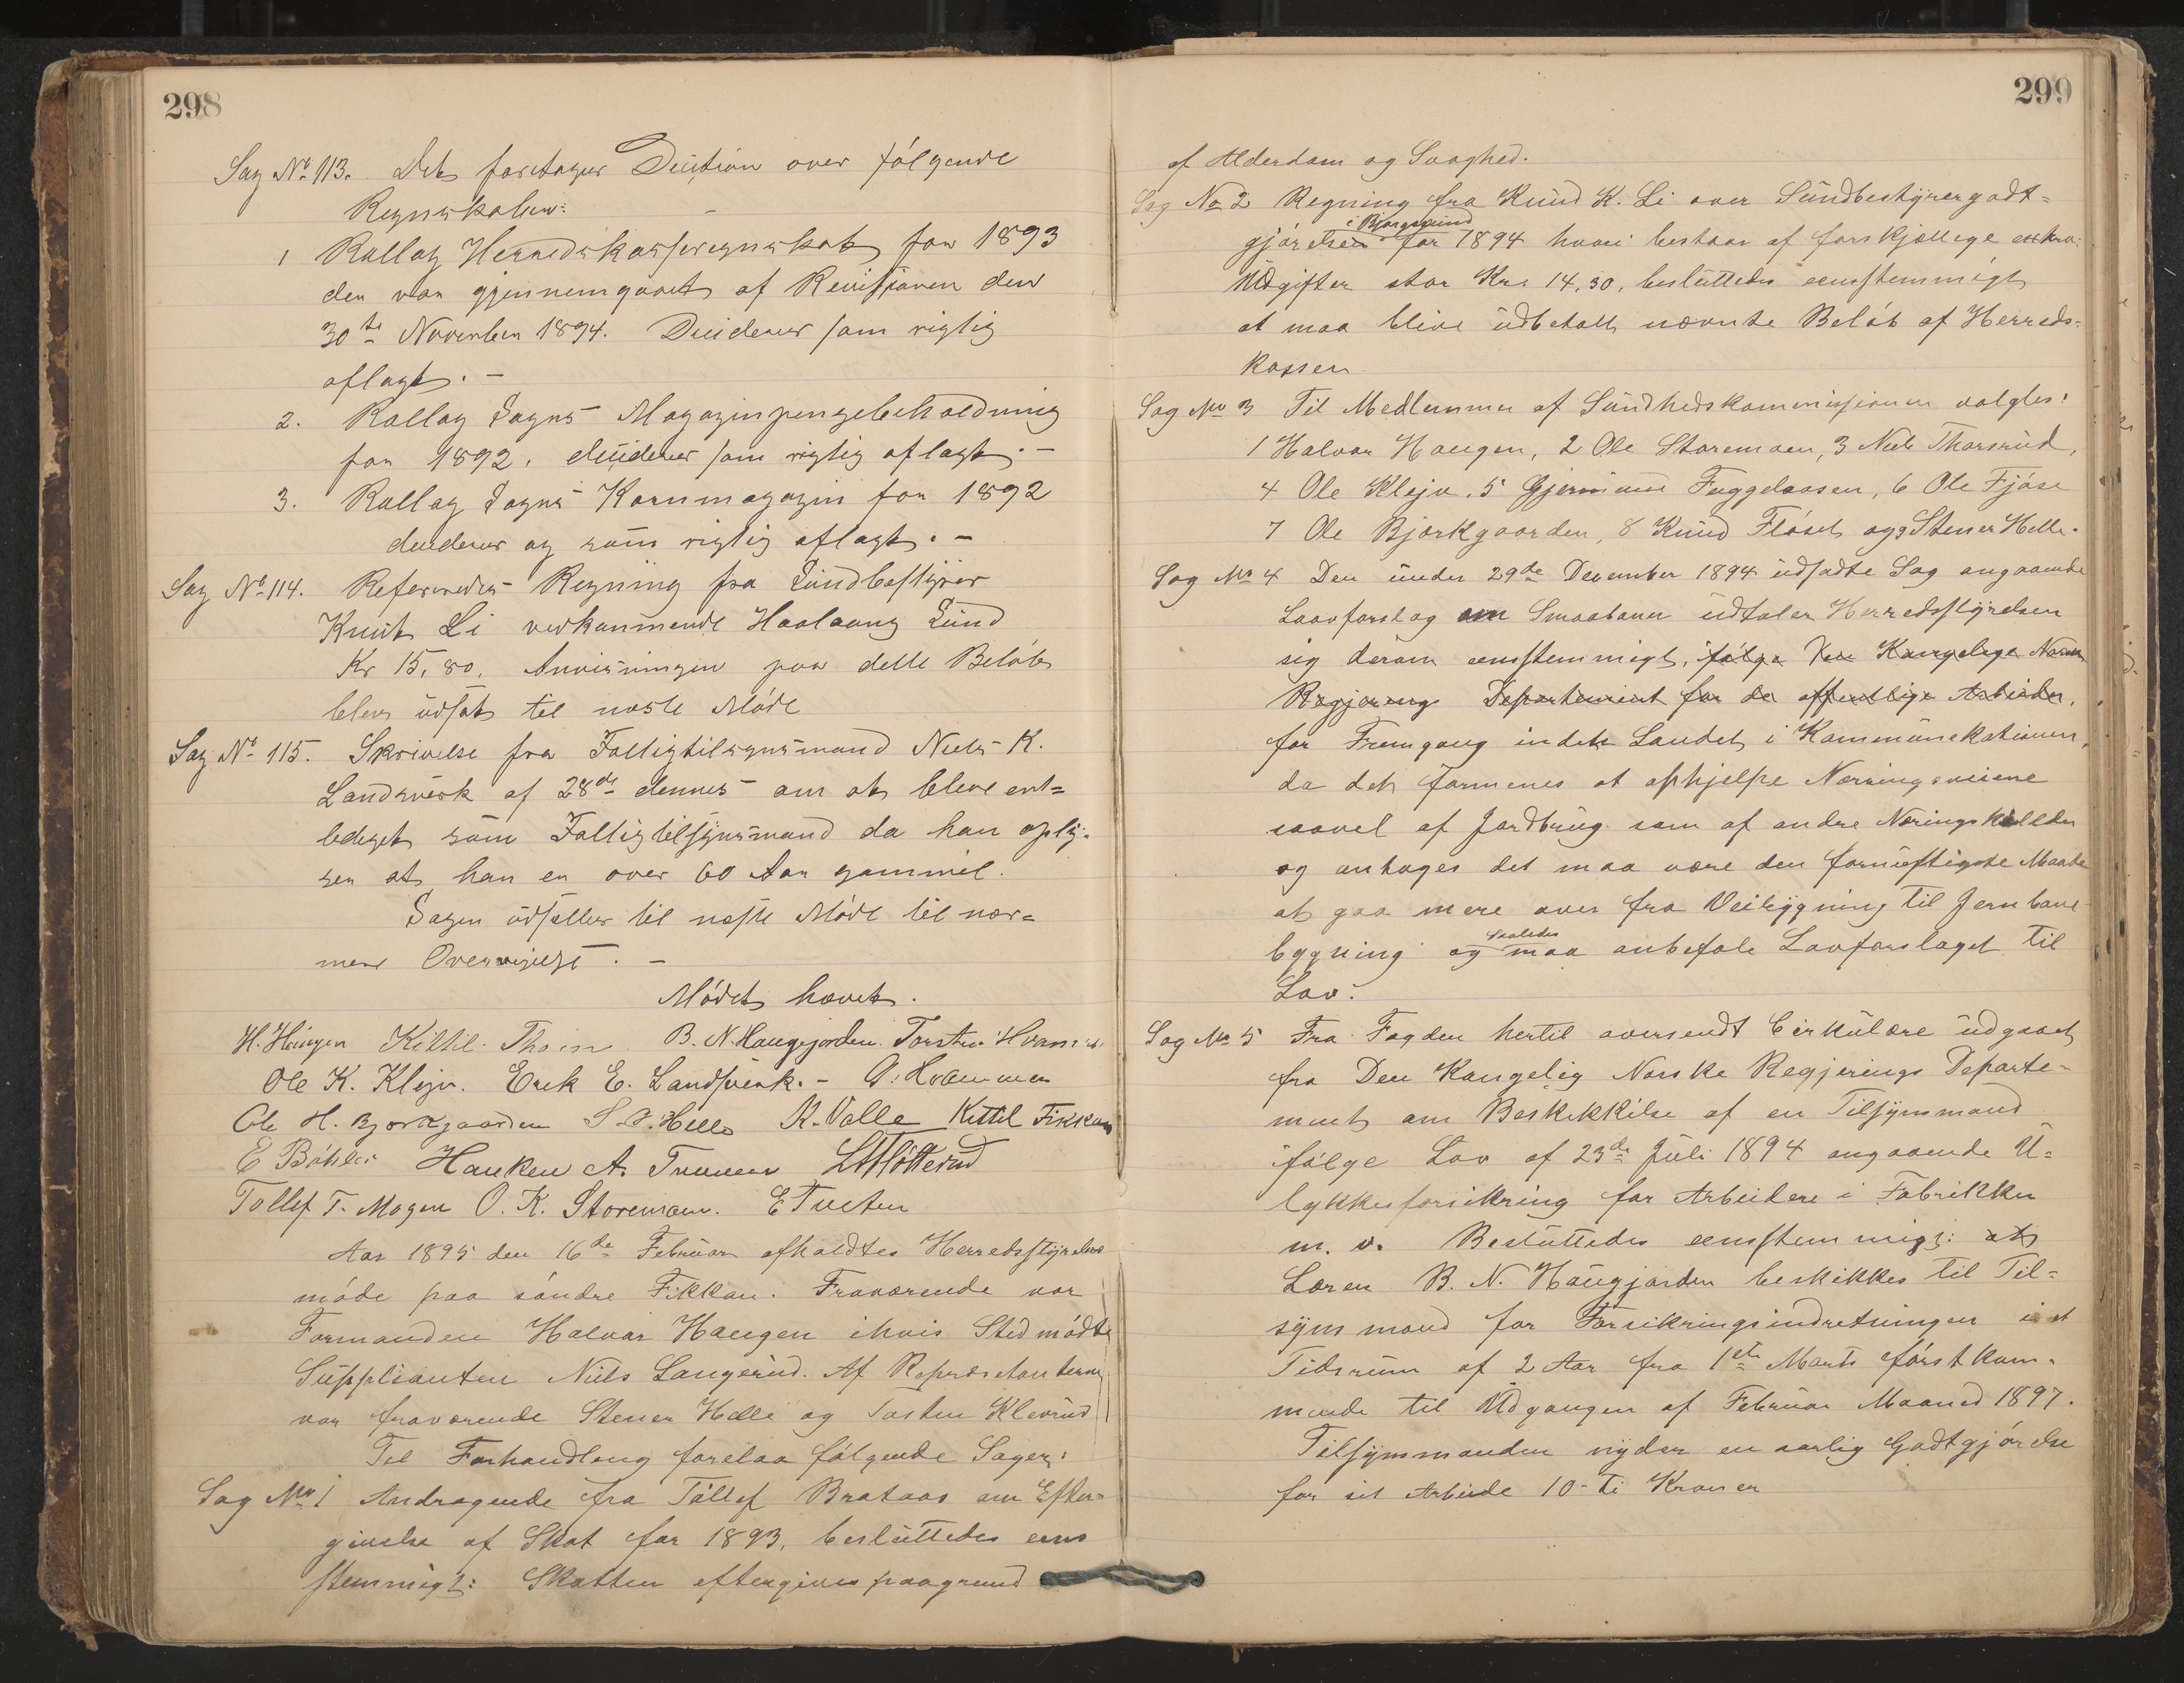 298
Sag No 113. Det foretoges Decition over følgende
Regnskaber:
1 Rollag Herredskasseregnskab for 1893
der var gjennemgaaet af Revisionen den
30te November 1894. Decideres som rigtig
aflagt. –
2. Rollag Sogns Magazinpengebeholdning
for 1892, decideres som rigtig aflagt. –
3. Rollag Sogns Kornmagazin for 1892
decideres og som rigtig aflagt. –
Sag No 114. Refereredes Regning fra Sundbestyrer
Knut Li vedkommende Sund
Kr 15,80. Anvisningen paa dette Beløb
blev udsat til næste Møde
Sag No 115. Skrivelse fra Fattigtilsynsmand Niels K.
Landsverk af 28de dennes om at blive ent=
lediget som Fattigtilsynsmand da han oply=
ser at han er over 60 Aar gammel.
Sagen udsættes til næste Møde til nær=
mere . –
Mødet hævet.
H. Haugen Kittil Thoen B. N. Haugjorden. Torsten
Ole K. Klejv. Erik E. Landsverk. –
Ole H. Bjørkgaarden S. Helle K. Valle Kittil Fikkan
E Bøhler Haaken A.
Tollef T. Mogen O. K. Storemoen. E Tveten
Aar 1895 den 16de Februar afholdtes Herredsstyrelses
møde paa søndre Fikkan. Fraværende var
Formanden Halvor Haugen ihvis Sted mødte
Supplianten Niels Langerud. Af Repræsetanterne
var fraværende Stener Helle og Tosten Klevrud
Til Forhandling forelaa følgende Sager:
Sag No 1 Andragende fra Tollef Brataas om Efter=
givelse af Skat for 1893, besluttedes eens
stemmigt: Skatten eftergives paagrund
299
af Alderdom og Svaghed.
Sag No 2 Regning fra Knud K. Li over Sundbestyrergodt=
i Bjørgesund
gjørelsen for 1894 hvori bestaar af forskjællige extra=
Udgifter stor Kr. 14,30, besluttedes eensstemmigt
at maa blive udbetalt nævnte Beløb af Herreds=
kassen
Sag No 3 Til Medlemmer af Sundhedskommissionen valgtes:
1 Halvor Haugen, 2 Ole Storemoen, 3 Niels Thorsrud,
4 Ole Klejv, 5 Gjermund Fuggelaasen, 6 Ole Fjøse
7 Ole Bjørkgaarden, 8 Knud Fløset og 9 Stener Helle.
Sag No 4 Den under 29de December 1894 udsadte Sag angaaende
Laavforslag om Smaabaner udtaler Herredsstyrelsen
sig derom eensstemmigt, følge Den Kongelige Norske
Regjerings Departement for de offentlige Arbeider,
for Fremgang indet Landet i Kommunekationen,
da det formenes at ophjelpe Næringsveiene
saavel af Jordbrug som af andre Næringskilder
og antages det maa være den fornuftigste Maade
at gaa mere over fra Veibygning til Jernbane
Saaledes
bygning og maa anbefale Lovforslaget til
Lov.
Sag No 5 Fra Fogden hertil oversendt Cirkulære udgaaet
fra Den Kongelig Norske Regjerings Departe=
ment om Beskikkilse af en Tilsynsmand
ifølge Lov af 23de Juli 1894 angaaende U=
lykkesforsikring for Arbeidere i Fabrikker
m. v. Besluttedes eensstemmigt: at
Læren B. N. Haugjorden beskikkes til Til=
synsmand for Forsikringsindretningen i et
Tidsrum af 2 Aar fra 1ste Marts førstkom=
mende til Udgangen af Februar Maaned 1897.
Tilsynsmanden nyder en aarlig Godtgjørelse
for sit Arbeide 10 - Ti Kroner